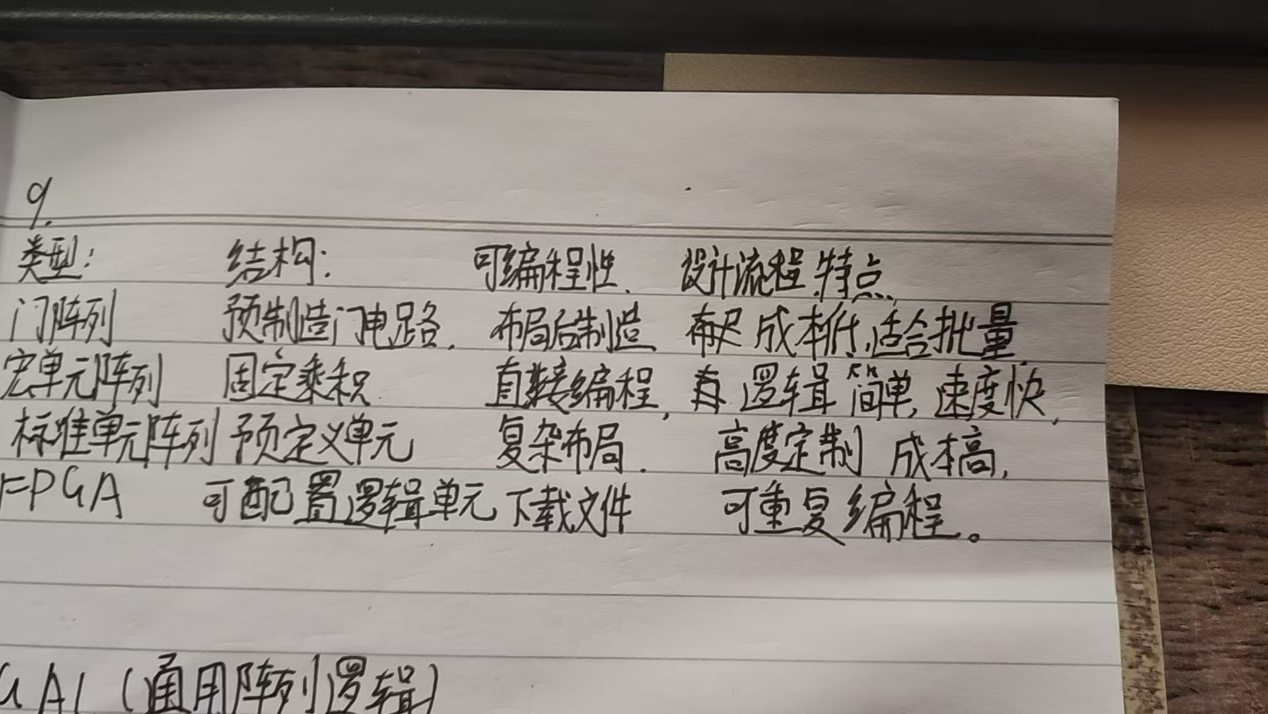 9.
类型: 结构: 可编程性. 设计流程.特点,
门阵列 预制造门电路. 布局后制造 成本低,适合批量,
宏单元阵列 固定乘积 直接编程, 逻辑简单,速度快,
标准单元阵列 预定义单元 复杂布局. 高度定制 成本高,
FPGA 可配置逻辑单元 下载文件 可重复编程。
GAL(通用阵列逻辑)